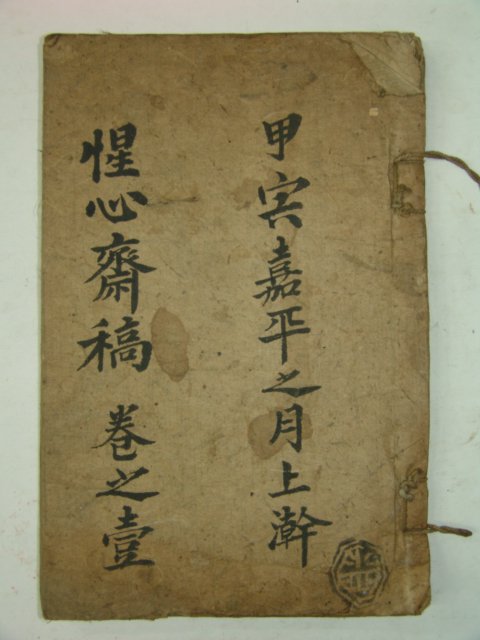 甲寅嘉平之月上澣
惺心齋稿 卷之壹